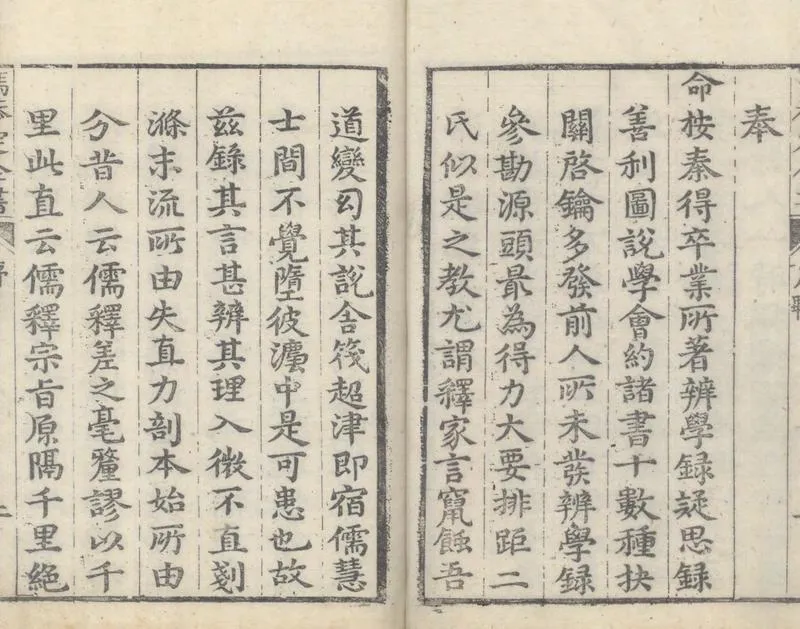 奉
命按秦得卒業所著辨學録疑思録
善利圖說學會約諸書十數種抉
關啓鑰多發前人所未發辨學録
參勘源頭最為得力大要排距二
氏似是之教尤謂釋家言竄蝕吾
道變幻其說舍筏超津即宿儒慧
士間不覺墮彼灋中是可患也故
茲錄其言甚辨其理入微不直剗
滌末流所由失直力剖本始所由
分昔人云儒釋差之毫釐謬以千
里此直云儒釋宗旨原隔千里絶